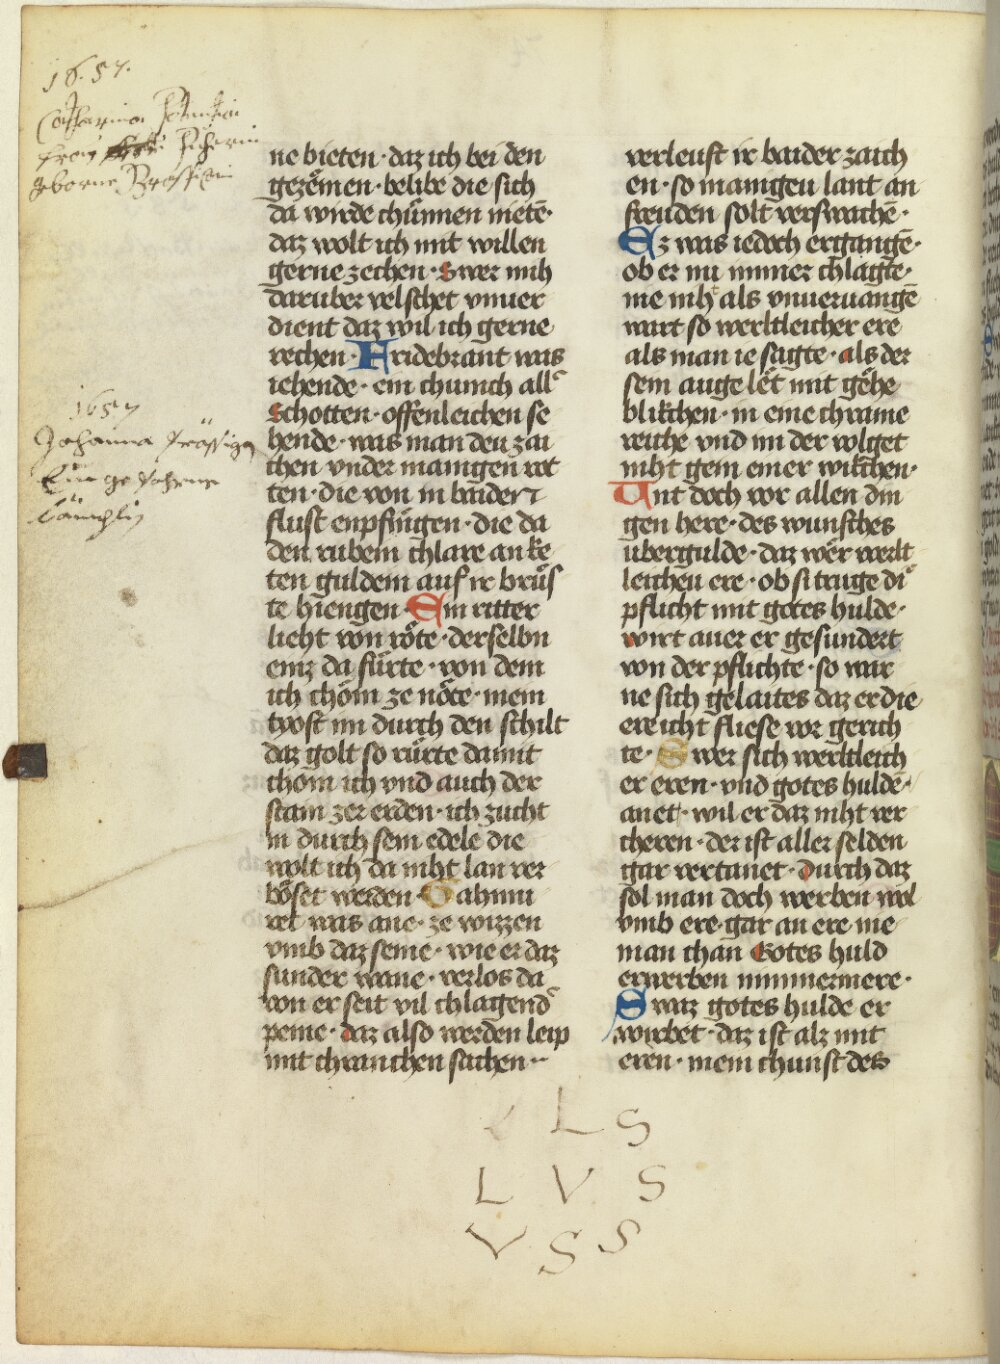 1657.
Catharina
frau
geborne
ne bieten · daz ich bei den
gezëmen · belibe die sich
da wirde chünnen nietē·
daz wolt ich mit willen
gerne zechen · Swer mih
daruber velschet vnuer
dient daz wil ich gerne
rechen · Fridebrant was
iehende · ein chunich all᷑
Schotten · offenleichen se
hende · was man den zai
chen vnder manigen rot
ten · die von in baider
flust enpfingen · die da
den rubein chlare an ke
ten guldein auf ir brüs
te hiengen · Ein ritter
lieht von röte · derselbn
einz da fürte · von dem
ich chom ze nöte · mein
tyost im durch den schilt
daz golt so rürte damit
chom ich vnd auch der
stain zer erden · ich zucht
in durch sein edele die
wolt ich da niht lan ver
böset werden · Gahmu
ret was ane · ze wizzen
vmb daz seine · wie er daz
sunder wane · verlos da
von er seit vil chlagend᷑
peine · daz also werden leip
mit chranchen sachen ··
1657
Johanna
Ein geborne
verleust ir baider zaich
en · so manigeu lant an
freuden solt verswachē·
Ez was iedoch ergangē·
ob er nu immer chlagte·
nie niht als vnueruangē
wart so werltleicher ere
als man ie sagte · als der
sein auge let mit gëhe
blikchen · in eine chrame
reiche vnd im der volget
niht gein einer wikchen·
Unt doch vor allen din
gen here · des wunsches
übergulde · daz wer werlt
leicheu ere · ob si truge di
pflicht mit gotes hulde·
wirt auer er gesundert
von der pflichte · so war
ne sich gelaites daz er die
ere icht fliese vor gerich
te · Swer sich werltleich
er eren · vnd gotes huldē·
anet · wil er daz niht ver
cheren · der ist aller selden
gar vertanet · durch daz
sol man doch werben wol
vmb ere · gar an ere nie
man chan Gotes huld
erwerben nimmermere·
Swaz gotes hulde er
wirbet · daz ist alz mit
eren · mein chunst des
L S
L V S
V S S